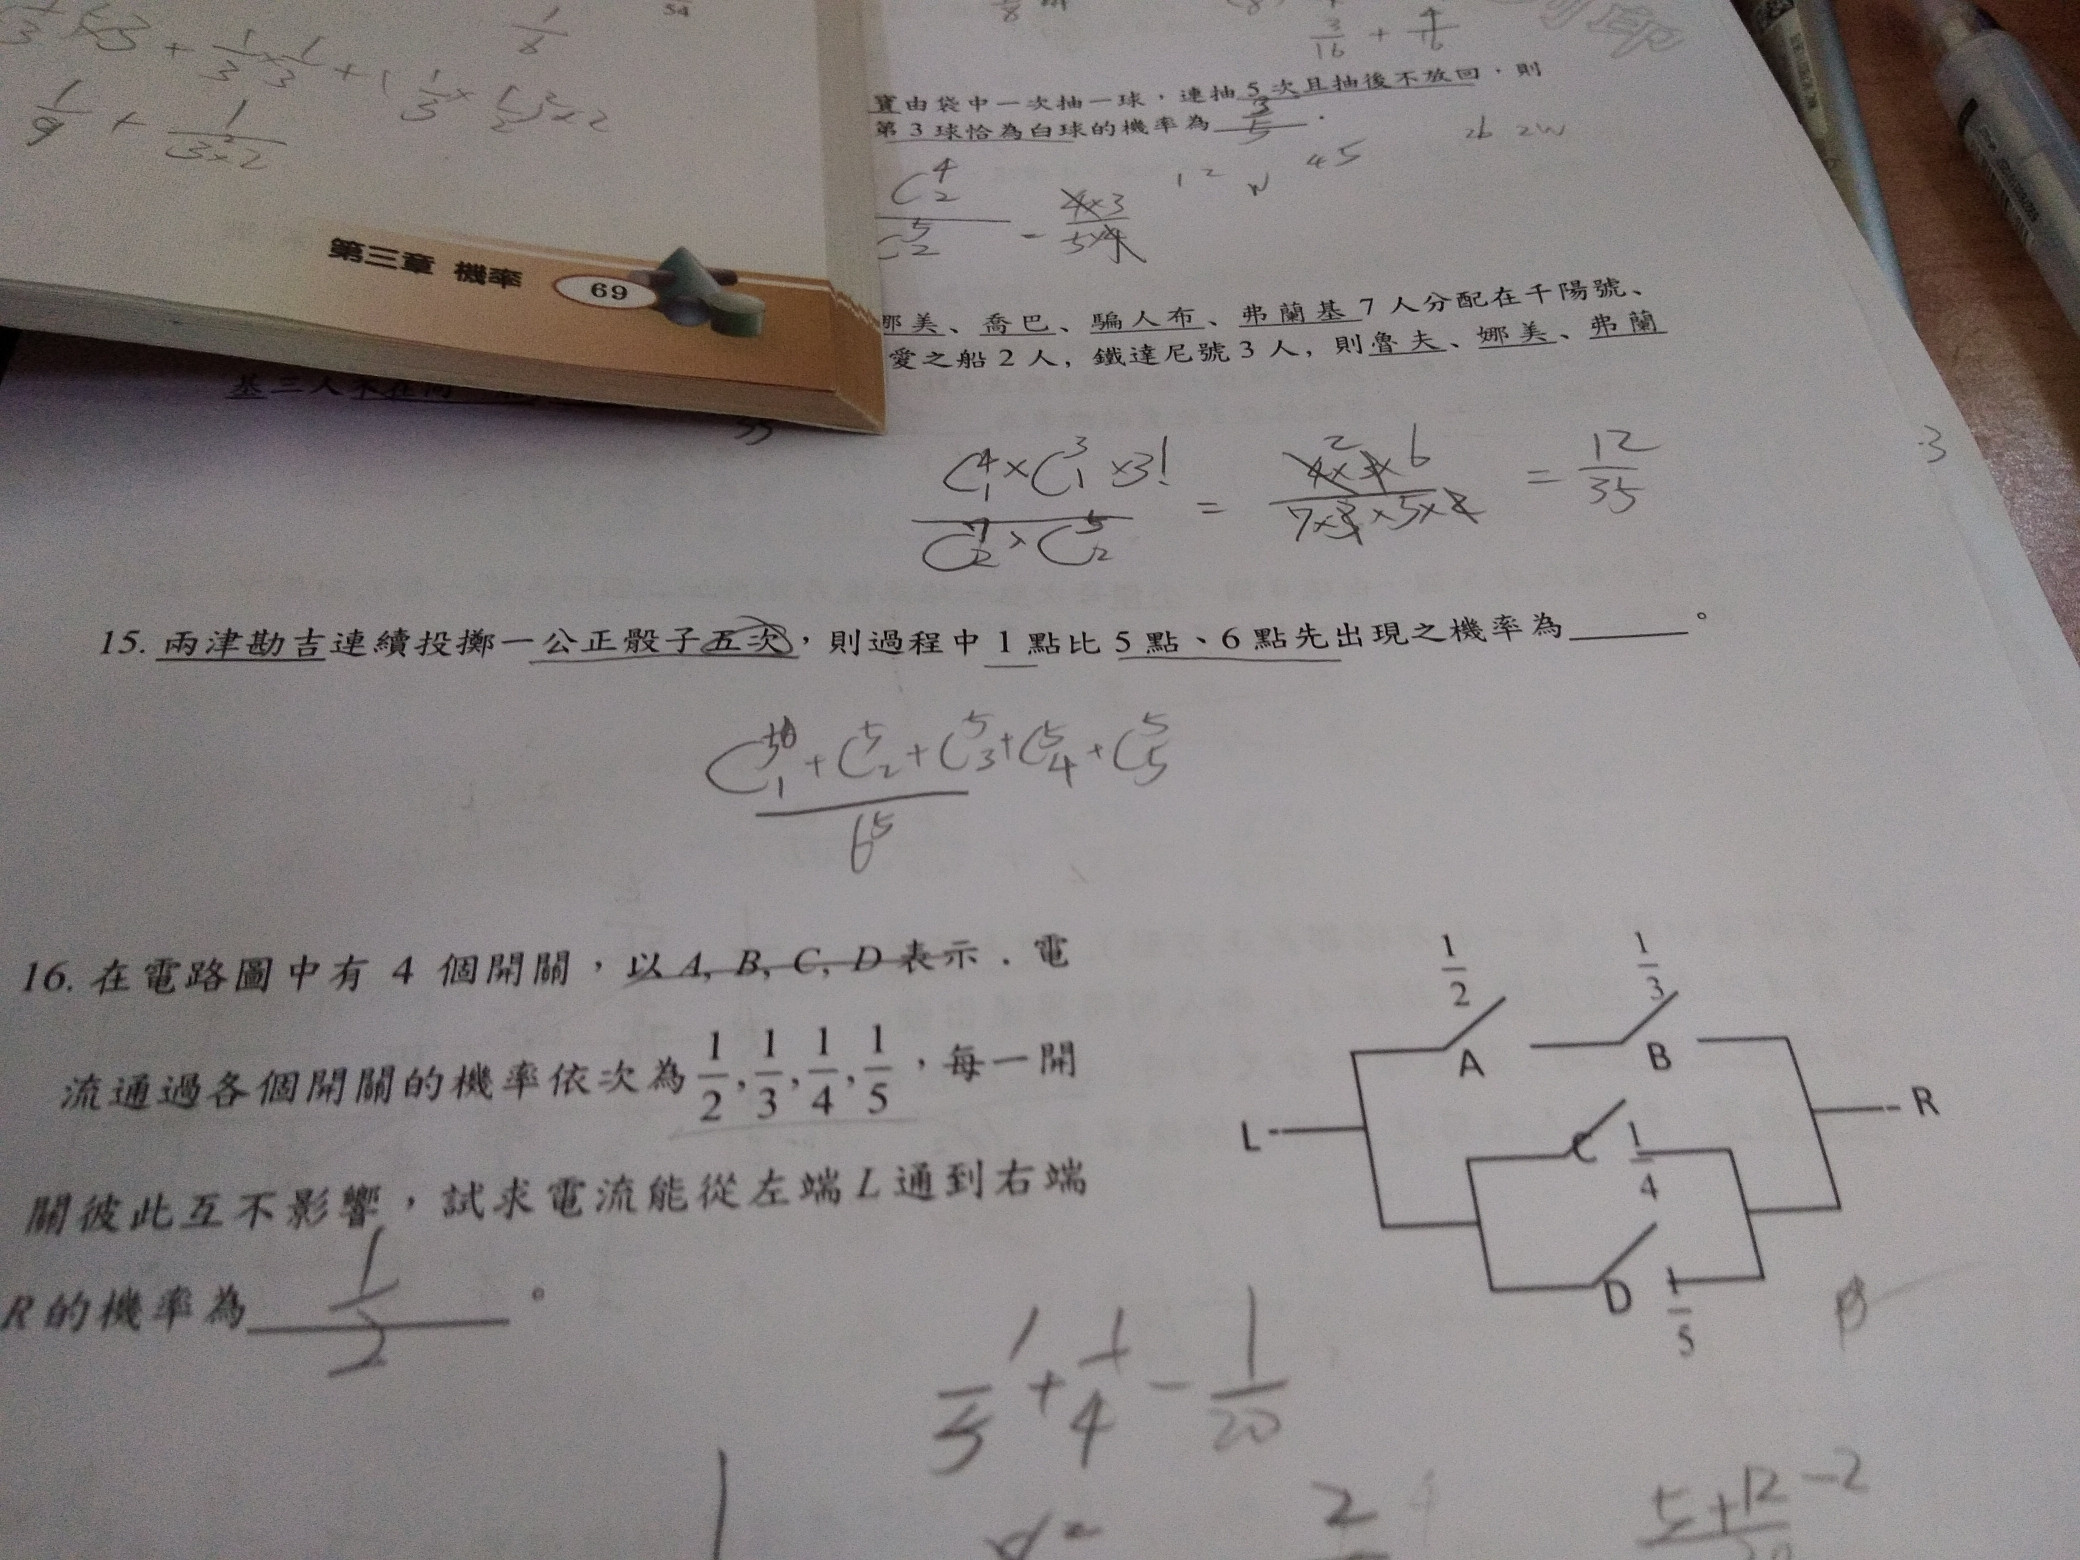 寶由袋中一次抽一球，連抽5次且抽後不放回，則
第3球恰為白球的機率為 3/5 .
C^4_2 / C^5_2 = 4×3 / 5×4
1 2 W 4 5
2b 2W
第三章 機率 69
娜美、喬巴、騙人布、弗蘭基7人分配在千陽號、
愛之船2人，鐵達尼號3人，則魯夫、娜美、弗蘭
基三人不在同一
C^4_1 × C^3_1 × 3! / C^7_2 × C^5_2 = 4×3×6 / 7×3×5×2 = 12/35
15. 兩津勘吉連續投擲一公正骰子五次，則過程中1點比5點、6點先出現之機率為______。
+ C^5_2 + C^5_3 + C^5_4 + C^5_5
6^5
16. 在電路圖中有 4 個開關，以 A, B, C, D 表示．電
流通過各個開關的機率依次為 1/2, 1/3, 1/4, 1/5，每一開
關彼此互不影響，試求電流能從左端 L 通到右端
R 的機率為 1/2 。
1/2 1/3
A B
L R
C 1/4
D 1/5
1/5 + 1/4 - 1/20
5+12-2